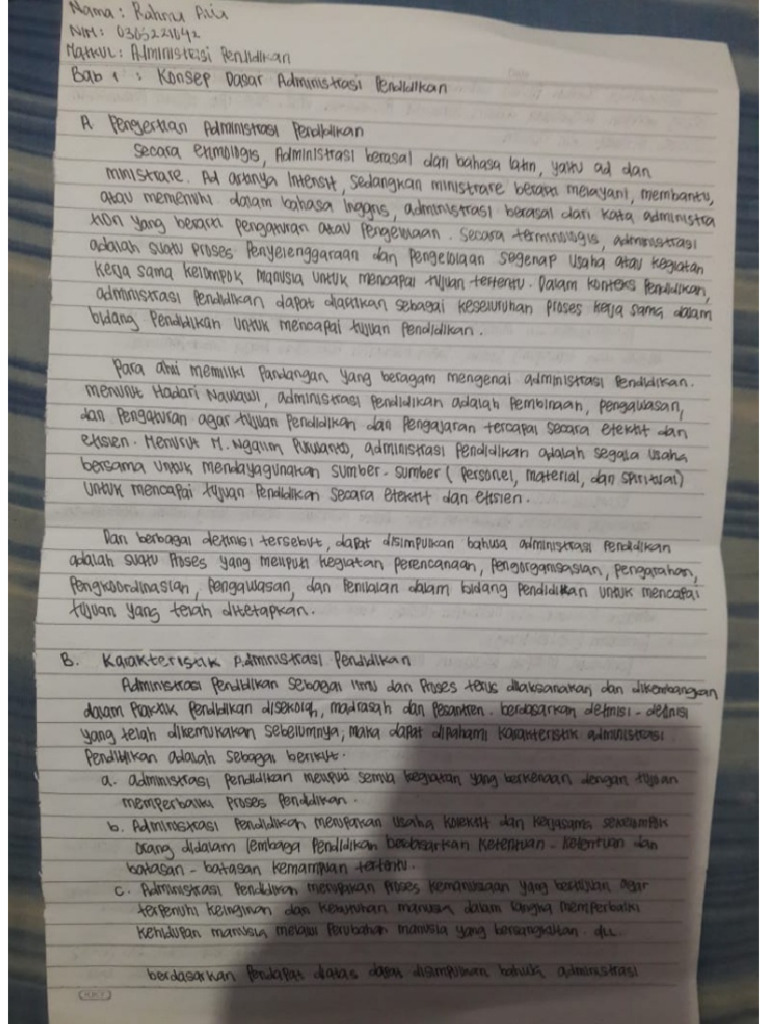 Nama : Rahma
NIM : 0305221042
Matkul : Administrasi Pendidikan
Bab 1 : Konsep Dasar Administrasi Pendidikan
A Pengertian Administrasi Pendidikan
Secara etimologis, Administrasi berasal dari bahasa latin, yaitu ad dan
ministrare. Ad artinya Intensif, sedangkan ministrare berarti melayani, membantu,
atau memenuhi dalam bahasa Inggris, administrasi berasal dari kata administra
tion yang berarti pengaturan atau pengelolaan. Secara terminologis, administrasi
adalah suatu proses Penyelenggaraan dan pengelolaan segenap usaha atau kegiatan
kerja sama kelompok manusia untuk mencapai tujuan tertentu. Dalam konteks Pendidikan,
administrasi Pendidikan dapat diartikan sebagai keseluruhan Proses kerja sama dalam
bidang Pendidikan untuk mencapai tujuan Pendidikan.
Para ahli memiliki Pandangan yang beragam mengenai administrasi Pendidikan.
menurut Hadari Nawawi, administrasi Pendidikan adalah Pembinaan, pengawasan,
dan Pengaturan agar tujuan Pendidikan dan Pengajaran tercapai secara efektif dan
efisien. Menurut M. Ngalim Purwanto, administrasi Pendidikan adalah segala usaha
bersama untuk mendayagunakan sumber-sumber (Personel, material, dan spiritual)
untuk mencapai tujuan Pendidikan secara efektif dan efisien.
Dari berbagai definisi tersebut, dapat disimpulkan bahwa administrasi Pendidikan
adalah suatu Proses yang meliputi kegiatan perencanaan, pengorganisasian, pengarahan,
Pengkoordinasian, Pengawasan, dan Penilaian dalam bidang Pendidikan untuk mencapai
tujuan yang telah ditetapkan.
B. Karakteristik Administrasi Pendidikan
Administrasi Pendidikan sebagai Ilmu dan Proses terus dilaksanakan dan dikembangkan
dalam Praktik Pendidikan disekolah, madrasah dan Pesantren. berdasarkan definisi-definisi
yang telah dikemukakan sebelumnya, maka dapat dipahami karakteristik administrasi
Pendidikan adalah sebagai berikut.
a. administrasi Pendidikan meliputi semua kegiatan yang berkenaan dengan tujuan
memperbaiki Proses Pendidikan.
b. Administrasi Pendidikan merupakan usaha kolektif dan kerjasama sekelompok
orang didalam lembaga Pendidikan berdasarkan ketentuan-ketentuan dan
batasan-batasan kemampuan tertentu.
c. Administrasi Pendidikan merupakan Proses kemanusiaan yang bertujuan agar
terpenuhi keinginan dan kebutuhan manusia dalam rangka memperbaiki
kehidupan manusia melalui Perubahan manusia yang bersangkutan. dll.
berdasarkan Pendapat diatas dapat disimpulkan bahwa administrasi